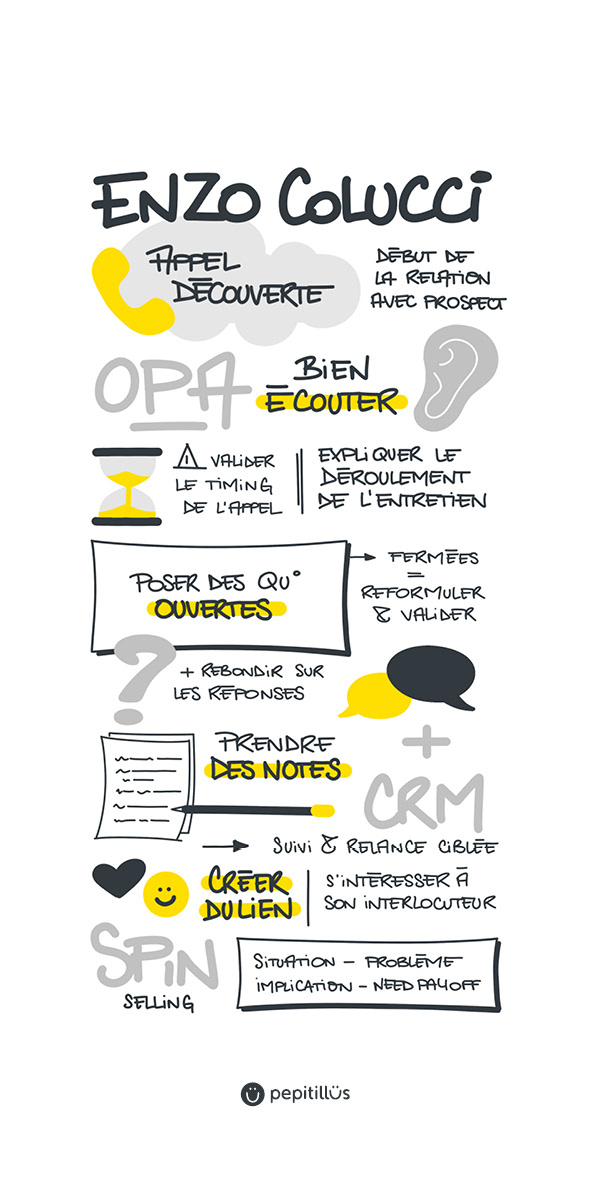 ENZO COLUCCI
APPEL
DÉCOUVERTE
DÉBUT DE
LA RELATION
AVEC PROSPECT
OPA
BIEN
ÉCOUTER
VALIDER
LE TIMING
DE L'APPEL
EXPLIQUER LE
DÉROULEMENT
DE L'ENTRETIEN
POSER DES QU°
OUVERTES
→ FERMÉES
=
REFORMULER
& VALIDER
?
+ REBONDIR SUR
LES RÉPONSES
PRENDRE
DES NOTES
+
CRM
→ SUIVI & RELANCE CIBLÉE
CRÉER
DU LIEN
S'INTÉRESSER À
SON INTERLOCUTEUR
SPIN
SELLING
SITUATION - PROBLÈME
IMPLICATION - NEED PAYOFF
pepitillüs